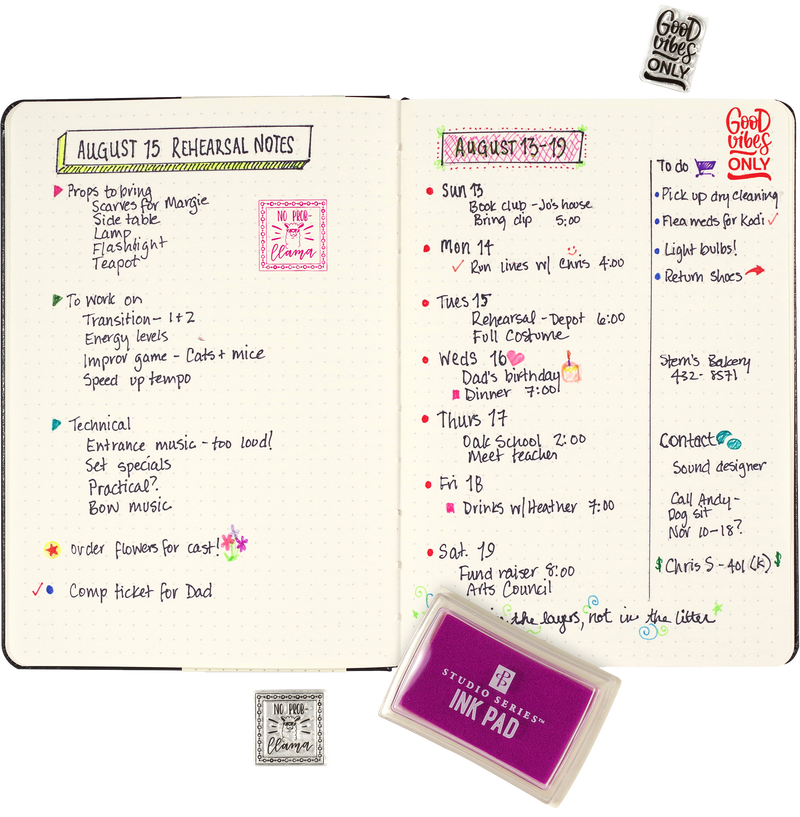 GOOD
vibes
ONLY
AUGUST 15 REHEARSAL NOTES
Props to bring
Scarves for Margie
Side table
Lamp
Flashlight
Teapot
NO PROB-
llama
To work on
Transition - 1+2
Energy levels
Improv game - Cats + mice
Speed up tempo
Technical
Entrance music - too loud!
Set specials
Practical?
Bow music
order flowers for cast!
Comp ticket for Dad
AUGUST 13-19
Sun 13
Book club - Jo's house
Bring dip 5:00
Mon 14
Run lines w/ Chris 4:00
Tues 15
Rehearsal - Depot 6:00
Full Costume
Weds 16
Dad's birthday
Dinner 7:00
Thurs 17
Oak School 2:00
Meet teacher
Fri 18
Drinks w/Heather 7:00
Sat. 19
Fund raiser 8:00
Arts Council
GOOD
vibes
ONLY
To do
Pick up dry cleaning
Flea meds for Kodi
Light bulbs!
Return shoes
Stern's Bakery
432-8571
Contact
Sound designer
Call Andy-
Dog sit
Nov 10-18?
$ Chris S - 401 (k) $
the layers, not in the litter
STUDIO SERIES™
INK PAD
NO PROB-
llama